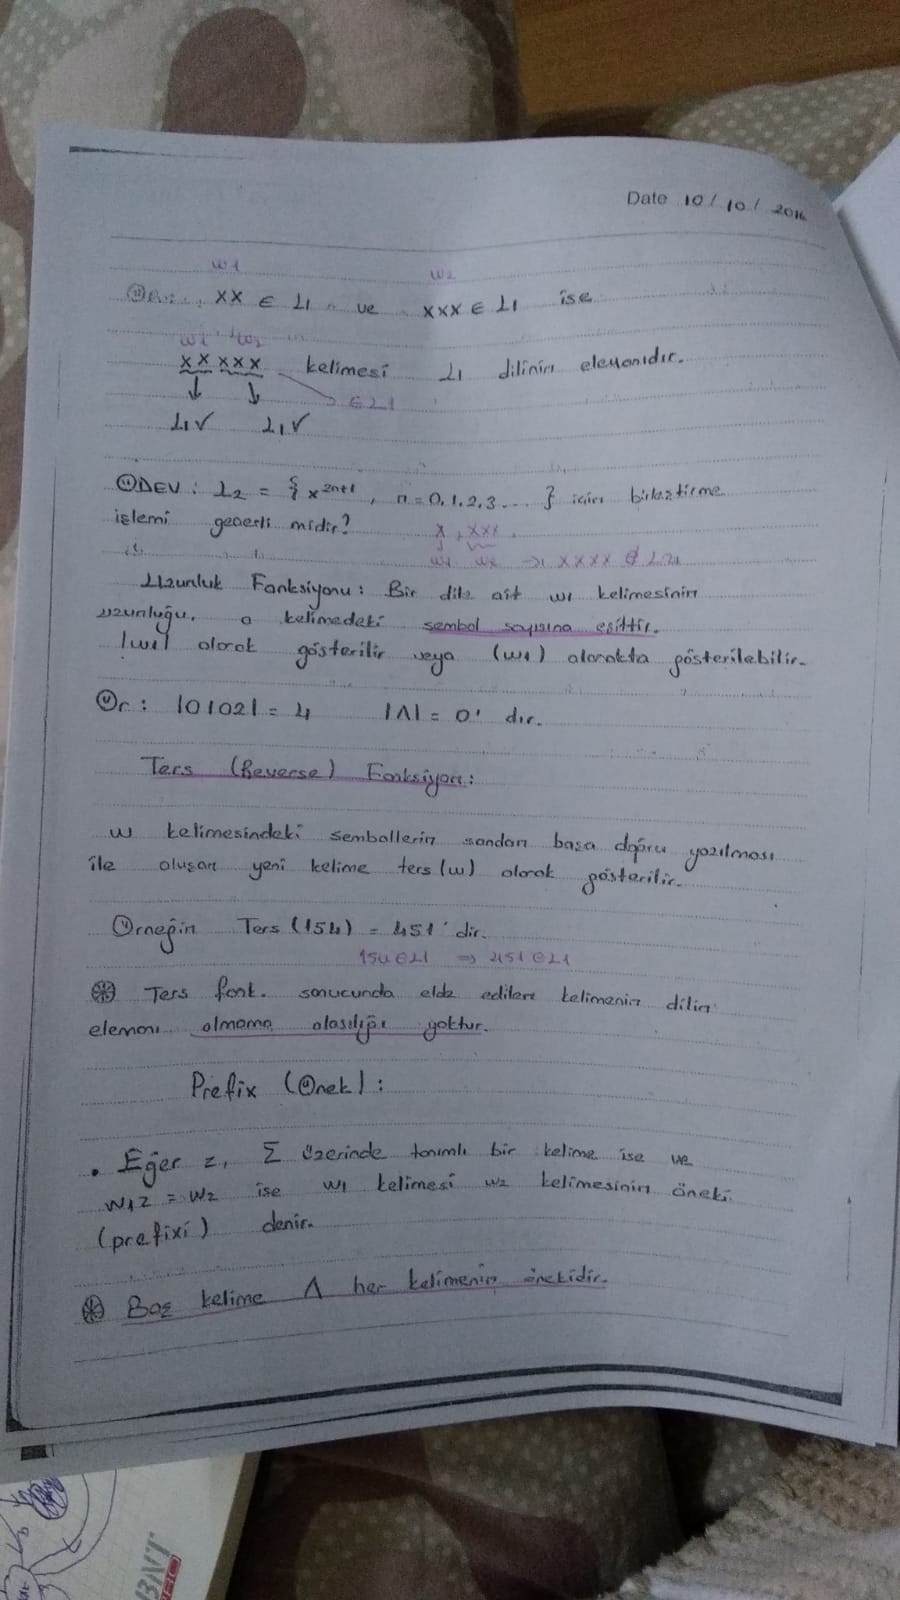 Date 10/10/2016
w1 w2
Ör: xx ∈ L1 ve xxx ∈ L1 ise
w1 w2
xx xxx kelimesi L1 dilinin elemanıdır.
↓ ↓ → ∈ L1
L1✓ L1✓
ÖDEV: L2 = { x^2n+1, n = 0,1,2,3... } için birleştirme
işlemi geçerli midir?
x, xxx
w1 w2 → xxxx ∉ L2
Uzunluk Fonksiyonu: Bir dile ait w1 kelimesinin
uzunluğu, o kelimedeki sembol sayısına eşittir.
|w1| olarak gösterilir veya (w1) olarakta gösterilebilir.
Ör: |0102| = 4 |Λ| = 0' dır.
Ters (Reverse) Fonksiyon:
w kelimesindeki sembollerin sondan başa doğru yazılması
ile oluşan yeni kelime ters(w) olarak gösterilir.
Örneğin Ters(154) = 451' dir.
154 ∈ L1 ⇒ 451 ∈ L1
⊛ Ters fonk. sonucunda elde edilen kelimenin dilin
elemanı olmama olasılığı yoktur.
Prefix (Önek):
• Eğer z, Σ üzerinde tanımlı bir kelime ise ve
w1z = w2 ise w1 kelimesi w2 kelimesinin öneki
(prefixi) denir.
⊛ Boş kelime Λ her kelimenin önekidir.